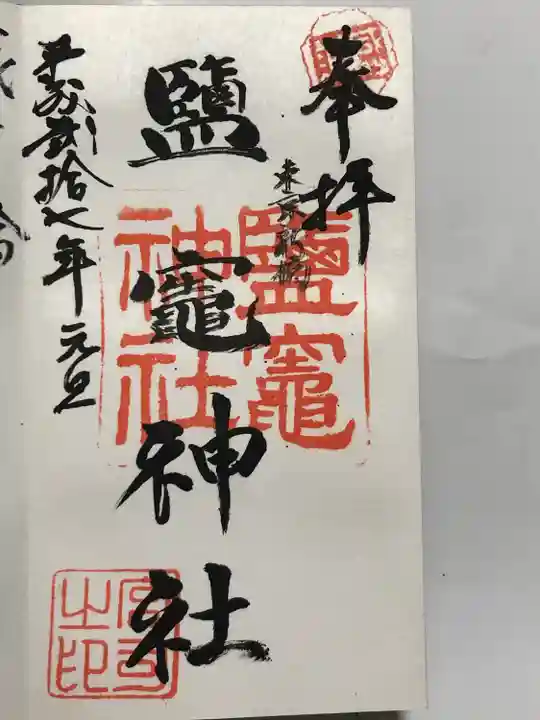 奉拝
鹽竈神社
平成弐拾七年元旦
鹽竈神社
宮司之印